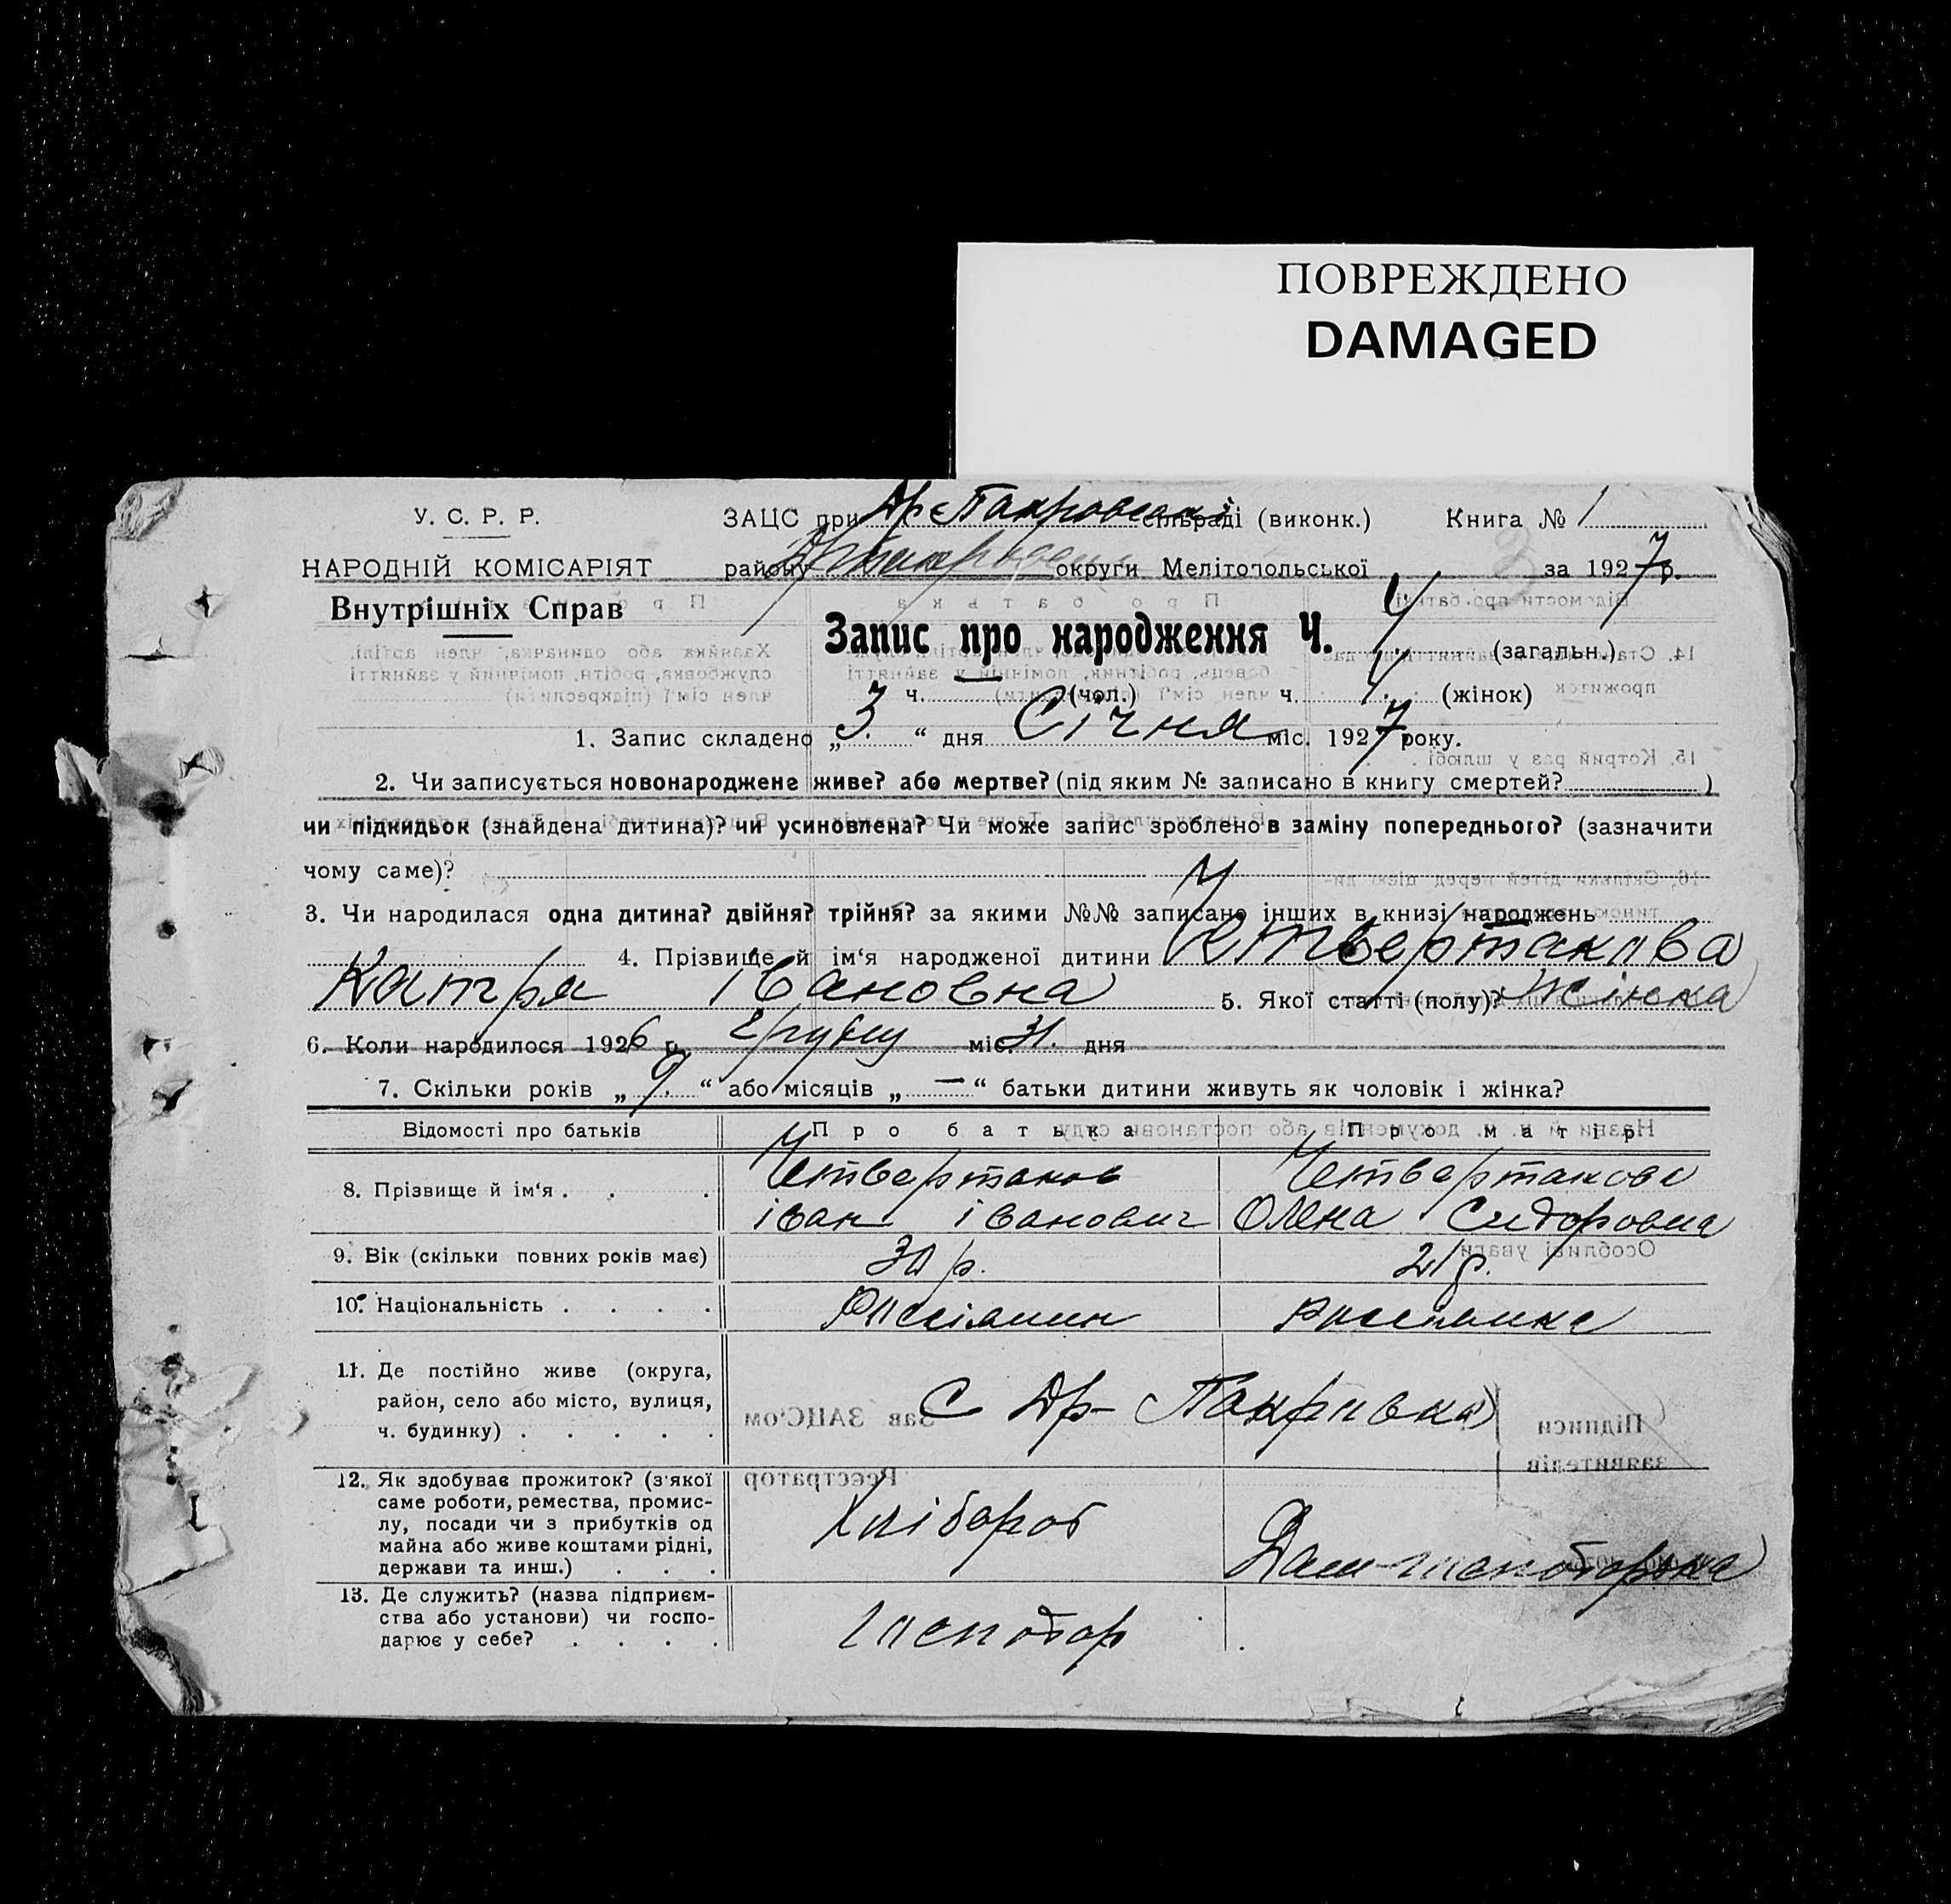 ПОВРЕЖДЕНО
DAMAGED
У. С. Р. Р.
ЗАЦС при Др-Покровській сільраді (виконк.) Книга № 1
НАРОДНІЙ КОМІСАРІЯТ
району округи Мелітопольської за 1927 р.
Внутрішніх Справ
Запис про народження Ч. 4 (загальн.)
3 ч. (чол.) ч. 4 (жінок)
1. Запис складено „ 3 “ дня Січня міс. 1927 року.
2. Чи записується новонароджене живе? або мертве? (під яким № записано в книгу смертей? )
чи підкидьок (знайдена дитина)? чи усиновлена? Чи може запис зроблено в заміну попереднього? (зазначити
чому саме)?
3. Чи народилася одна дитина? двійня? трійня? за якими №№ записано інших в книзі народжень
4. Прізвище й ім‘я народженої дитини Четвертакова
Катря Івановна 5. Якої статті (полу)? Жінка
6. Коли народилося 1926 р. міс. 31. дня
7. Скільки років „ 9. “ або місяців „ — “ батьки дитини живуть як чоловік і жінка?
Відомості про батьків Про батька Про матір
8. Прізвище й ім‘я . . . Четвертаков Четвертакова
іван іванович Олена Сидоровна
9. Вік (скільки повних років має) 30 р. 21 р.
10. Національність . . . . Россіянин россіянка
11. Де постійно живе (округа,
район, село або місто, вулиця,
ч. будинку) . . . . . С Др-Покровка
12. Як здобуває прожиток? (з‘якої
саме роботи, ремества, промис-
лу, посади чи з прибутків од
майна або живе коштами рідні,
держави та инш.) . . . Хлібороб
13. Де служить? (назва підприєм-
ства або установи) чи госпо-
дарює у себе? . . . . господар